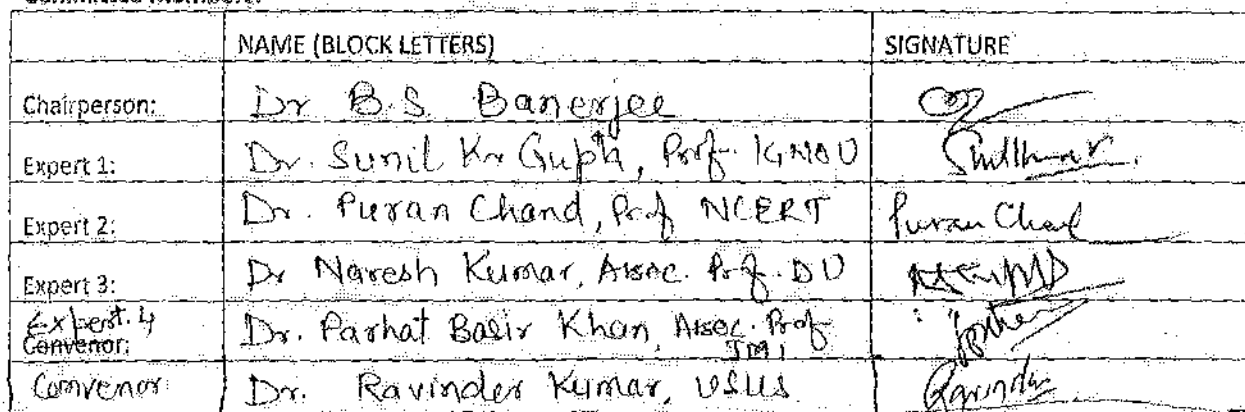 NAME (BLOCK LETTERS) SIGNATURE
Chairperson: Dr B.S. Banerjee
Expert 1: Dr. Sunil Kr Gupta, Prof. IGNOU
Expert 2: Dr. Puran Chand, Prof NCERT Puran Chand
Expert 3: Dr Naresh Kumar, Assoc. Prof. DU
Expert. 4
Convenor: Dr. Parhat Basir Khan, Assoc. Prof
JMI
Convenor Dr. Ravinder Kumar, Ravinder